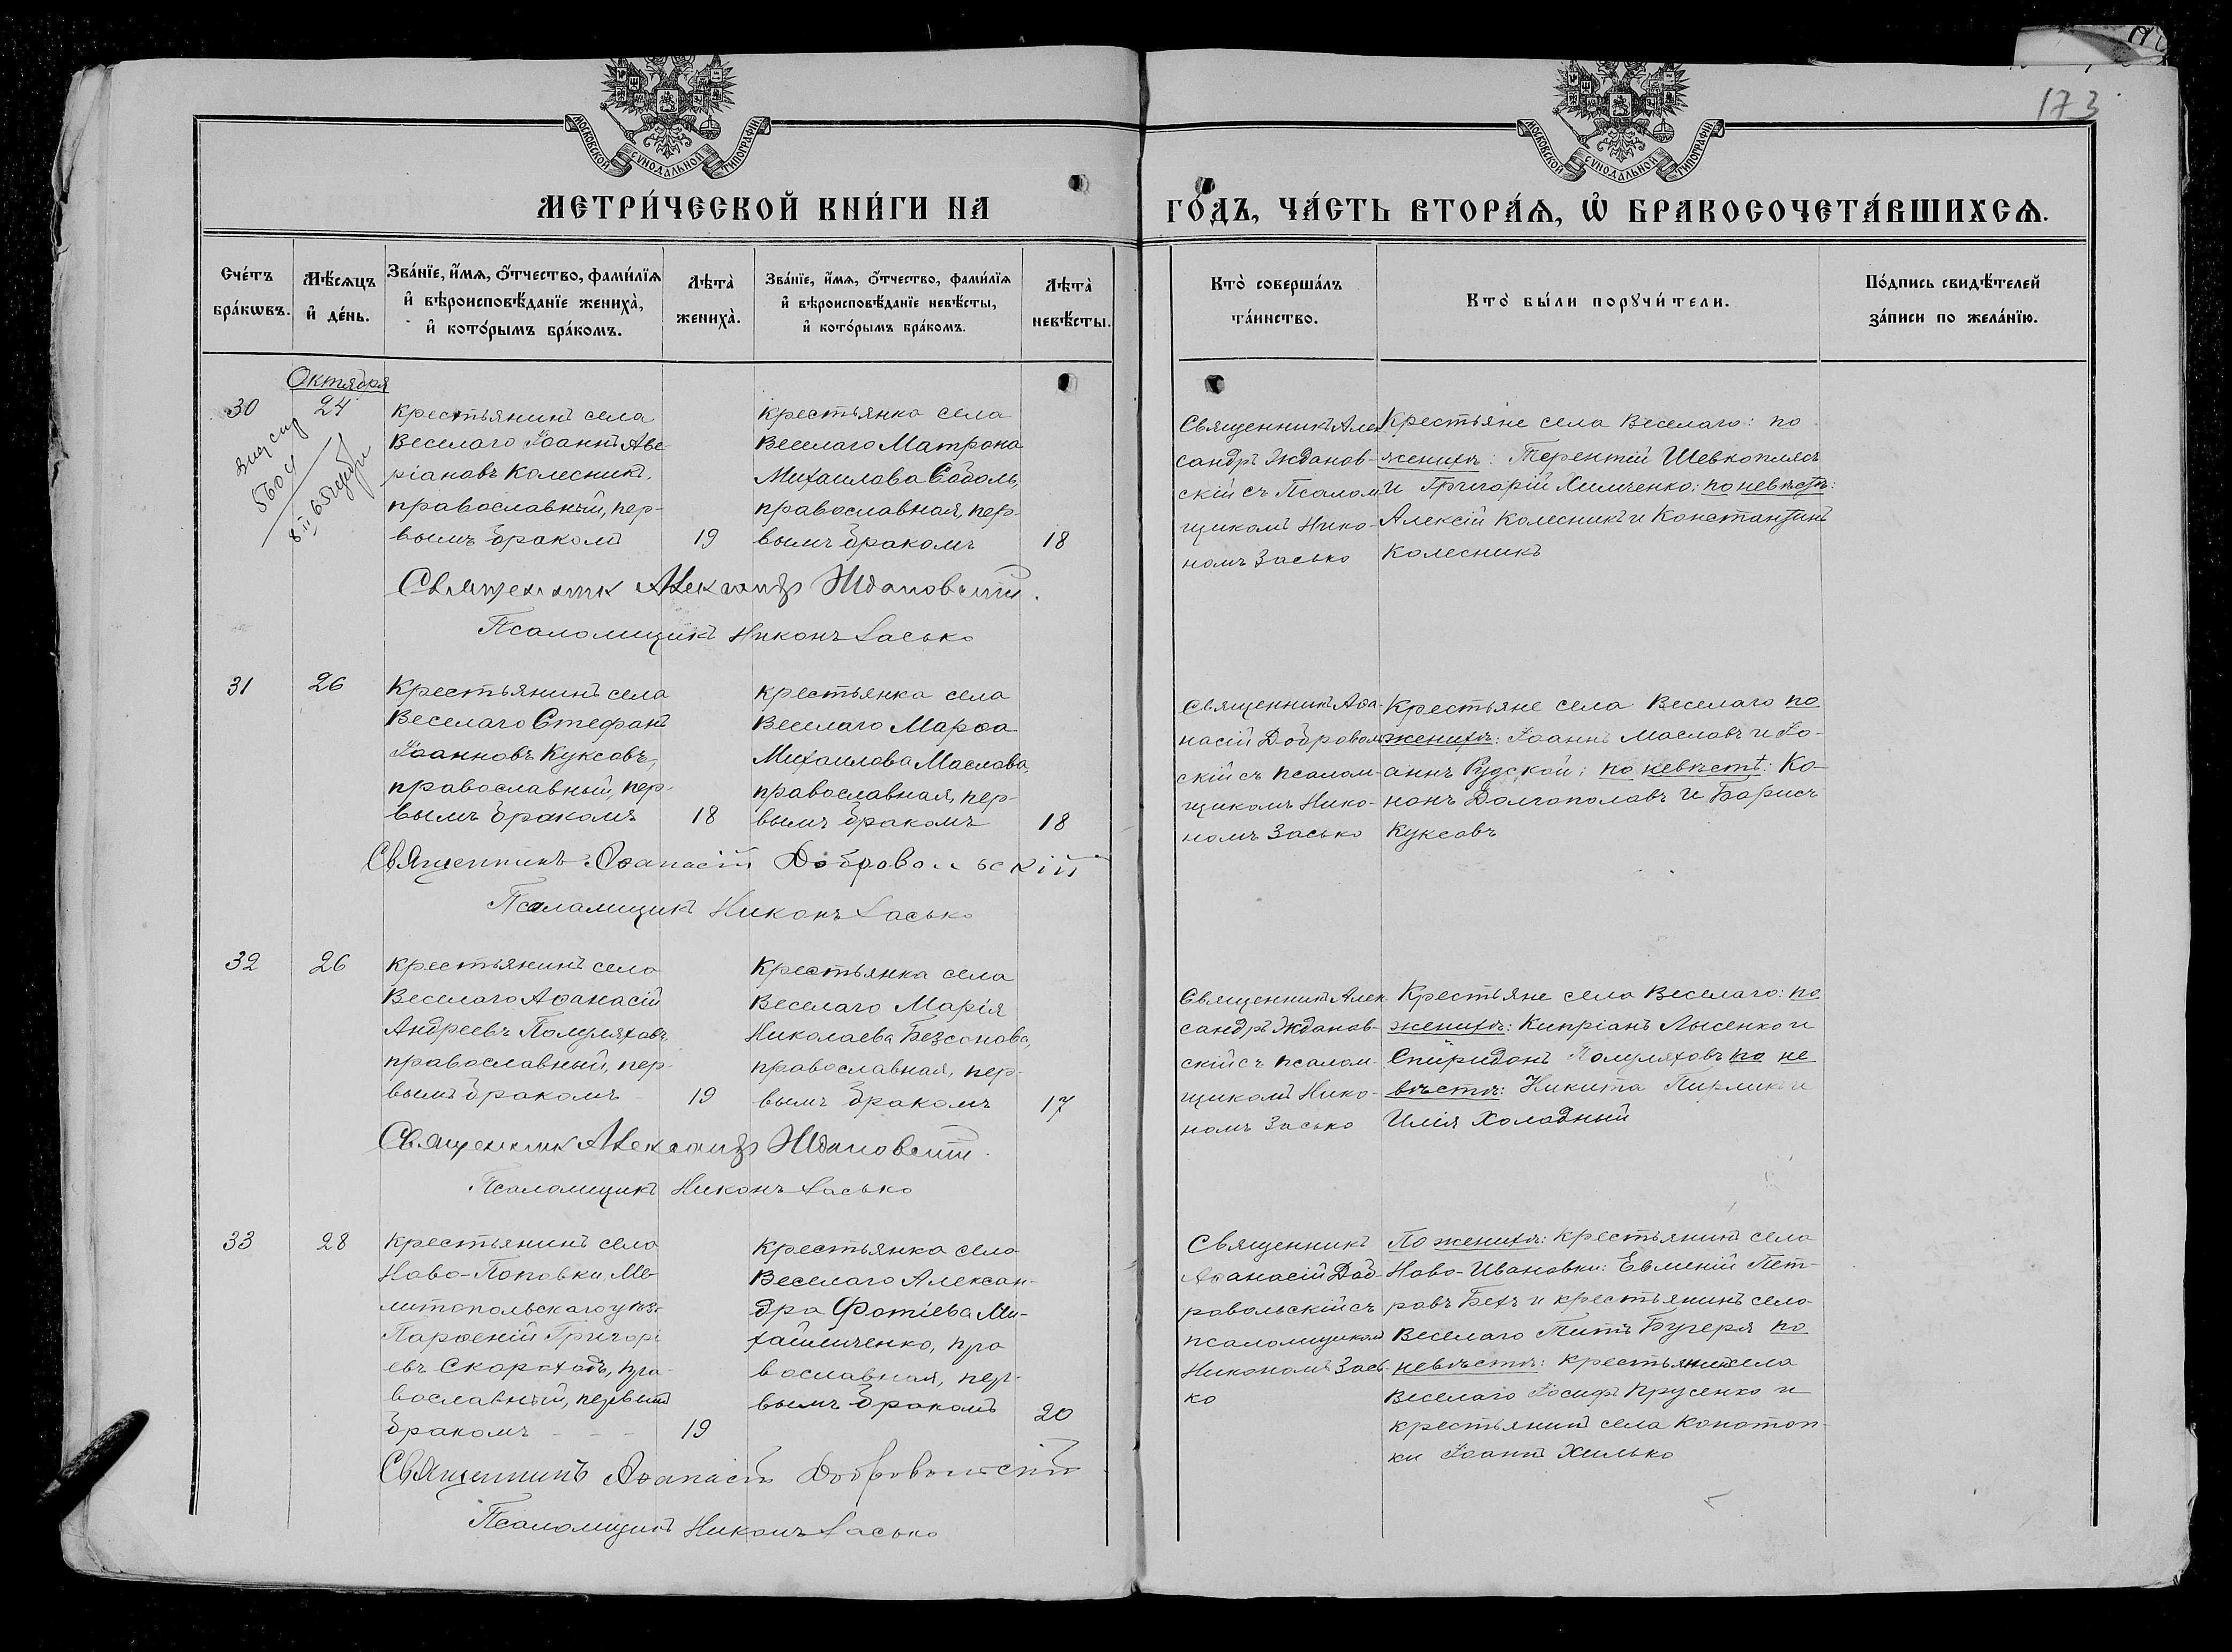 173
МОСКОВСКОЙ СУНОДАЛЬНОЙ ТИПОГРАФІИ.
МОСКОВСКОЙ СУНОДАЛЬНОЙ ТИПОГРАФІИ.
МЕТРИ́ЧЕСКОЙ КНИ́ГИ НА
ГО́ДЪ, ЧА́СТЬ ВТОРА́Ѧ, Ѡ҆ БРАКОСОЧЕТА́ВШИХСѦ.
Сче́тъ
бра́кѡвъ.
Мѣ́сѧцъ
и҆ де́нь.
Зва́нїе, и҆́мѧ, ѻ҆́тчество, фами́лїѧ
и҆ вѣроисповѣ́данїе жениха̀,
и҆ кото́рымъ бра́комъ.
Лѣта̀
жениха̀.
Зва́нїе, и҆́мѧ, ѻ҆́тчество, фами́лїѧ
и҆ вѣроисповѣ́данїе невѣ́сты,
и҆ кото́рымъ бра́комъ.
Лѣта̀
невѣ́сты.
Кто̀ соверша́лъ
та́инство.
Кто̀ бы́ли порꙋчи́тели.
По́дпись свидѣ́телей
за́писи по жела́нїю.
Октября
30
24
5604
8.II 65
Крестьянинъ села
Веселаго Іоаннъ Аве
ріановъ Колесникъ,
православный, пер-
вымъ бракомъ
19
Крестьянка села
Веселаго Матрона
Михаилова Соболь,
православная, пер-
вымъ бракомъ
18
Священникъ Алек
сандръ Жданов-
скій съ Псалом
щикомъ Нико-
номъ Засько
Крестьяне села Веселаго: по
женихѣ: Терентій Шевкоплясъ
и Григорій Химченко; по невѣстѣ:
Алексій Колесникъ и Константинъ
Колесникъ
Священник Александр Ждановский.
Псаломщикъ Никонъ Засько
31
26
Крестьянинъ села
Веселаго Стефанъ
Іоанновъ Куксовъ,
православный, пер-
вымъ бракомъ
18
Крестьянка села
Веселаго Марѳа
Михаилова Маслова,
православная, пер-
вымъ бракомъ
18
Священникъ Аѳа-
насій Доброволь
скій съ псалом-
щикомъ Нико-
номъ Засько
Крестьяне села Веселаго по
женихѣ: Іоаннъ Масловъ и Іо-
аннъ Рудской; по невѣстѣ: Ко-
нонъ Долгополовъ и Борисъ
Куксовъ
Священникъ Аѳанасій Добровольскій
Псаломщикъ Никонъ Засько
32
26
Крестьянинъ села
Веселаго Аѳанасій
Андреевъ Полуляховъ,
православный, пер-
вымъ бракомъ
19
Крестьянка села
Веселаго Марія
Николаева Безсонова,
православная, пер-
вымъ бракомъ
17
Священникъ Алек
сандръ Жданов-
скій съ псалом-
щикомъ Нико-
номъ Засько
Крестьяне села Веселаго: по
женихѣ: Кипріанъ Лысенко и
Спиридонъ Полуляховъ по не
вѣстѣ: Никита Пирликъ и
Илія Холодный
Священник Александр Ждановский.
Псаломщикъ Никонъ Засько
33
28
Крестьянинъ села
Ново-Поповки, Ме-
литопольскаго уѣз.
Парѳеній Григорі
евъ Скороходъ, пра-
вославный, первымъ
бракомъ - - -
19
Крестьянка села
Веселаго Алексан-
дра Фотіева Ми-
хайличенко, пра
вославная, пер-
вымъ бракомъ
20
Священникъ
Аѳанасій Доб-
ровольскій съ
псаломщикомъ
Никономъ Зась-
ко
По женихѣ: Крестьянинъ села
Ново-Ивановки: Евменій Пет-
ровъ Бехъ и крестьянинъ села
Веселаго Титъ Бугеря по
невѣстѣ: крестьянинъ села
Веселаго Іосифъ Прусенко и
крестьянинъ села Конотоп-
ки Іоаннъ Хилько
Священникъ Аѳанасій Добровольскій
Псаломщикъ Никонъ Засько